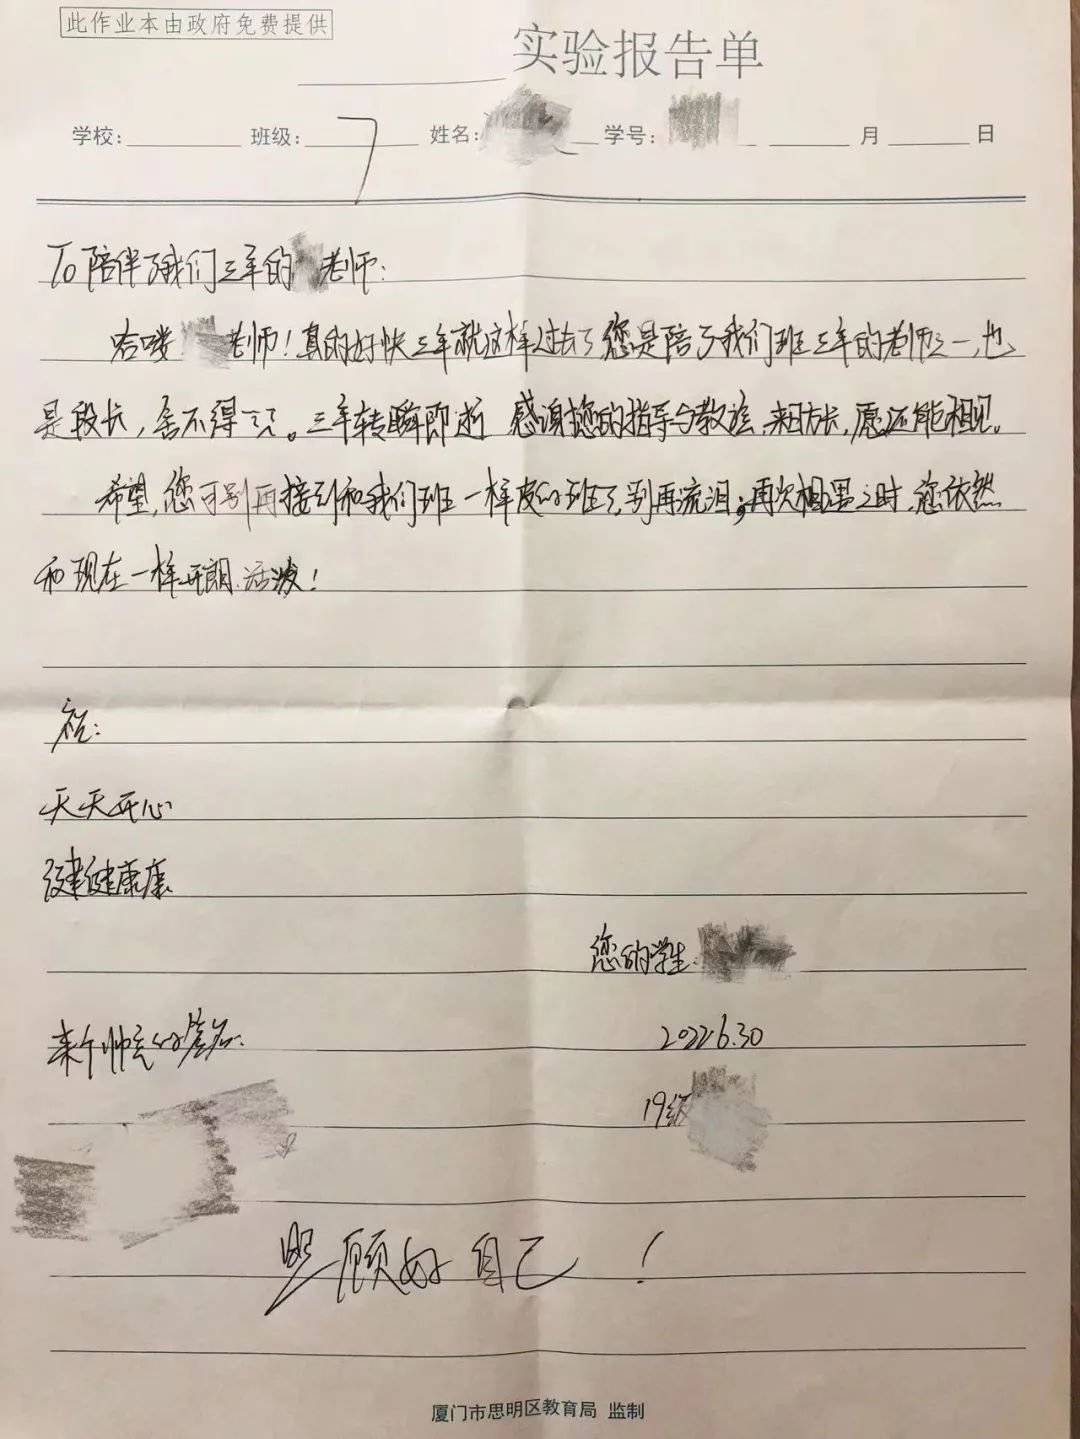 此作业本由政府免费提供
实验报告单
学校: 班级: 7 姓名: 学号: 月 日
To 陪伴了我们三年的 老师:
哈喽 老师!真的好快三年就这样过去了,您是陪了我们班三年的老师之一,也
是段长,舍不得 。三年转瞬即逝 感谢您的指导与教诲,来日方长,愿还能相见。
希望,您可别再接到和我们班一样皮的班了,别再流泪;再次相遇之时,您依然
和现在一样开朗、活泼!
祝:
天天开心
健健康康
您的学生:
来个帅气的签名:
2022.6.30
19级
照顾好自己 !
厦门市思明区教育局 监制